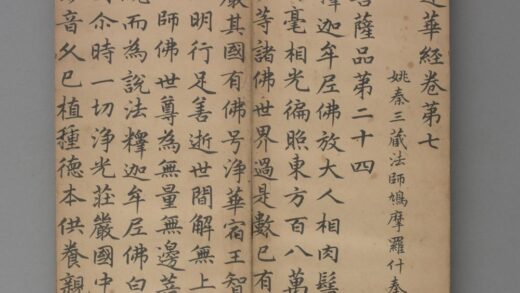 蓮華經卷第七
姚秦三藏法師鳩摩羅什奉
菩薩品第二十四
釋迦牟尼佛放大人相肉髻
毫相光徧照東方百八萬
等諸佛世界過是數已有
嚴其國有佛号淨華宿王智
明行足善逝世間解無上
師佛世尊為無量無邊菩
繞而為說法釋迦牟尼佛白
尒時一切淨光莊嚴國中
音久已植種德本供養親